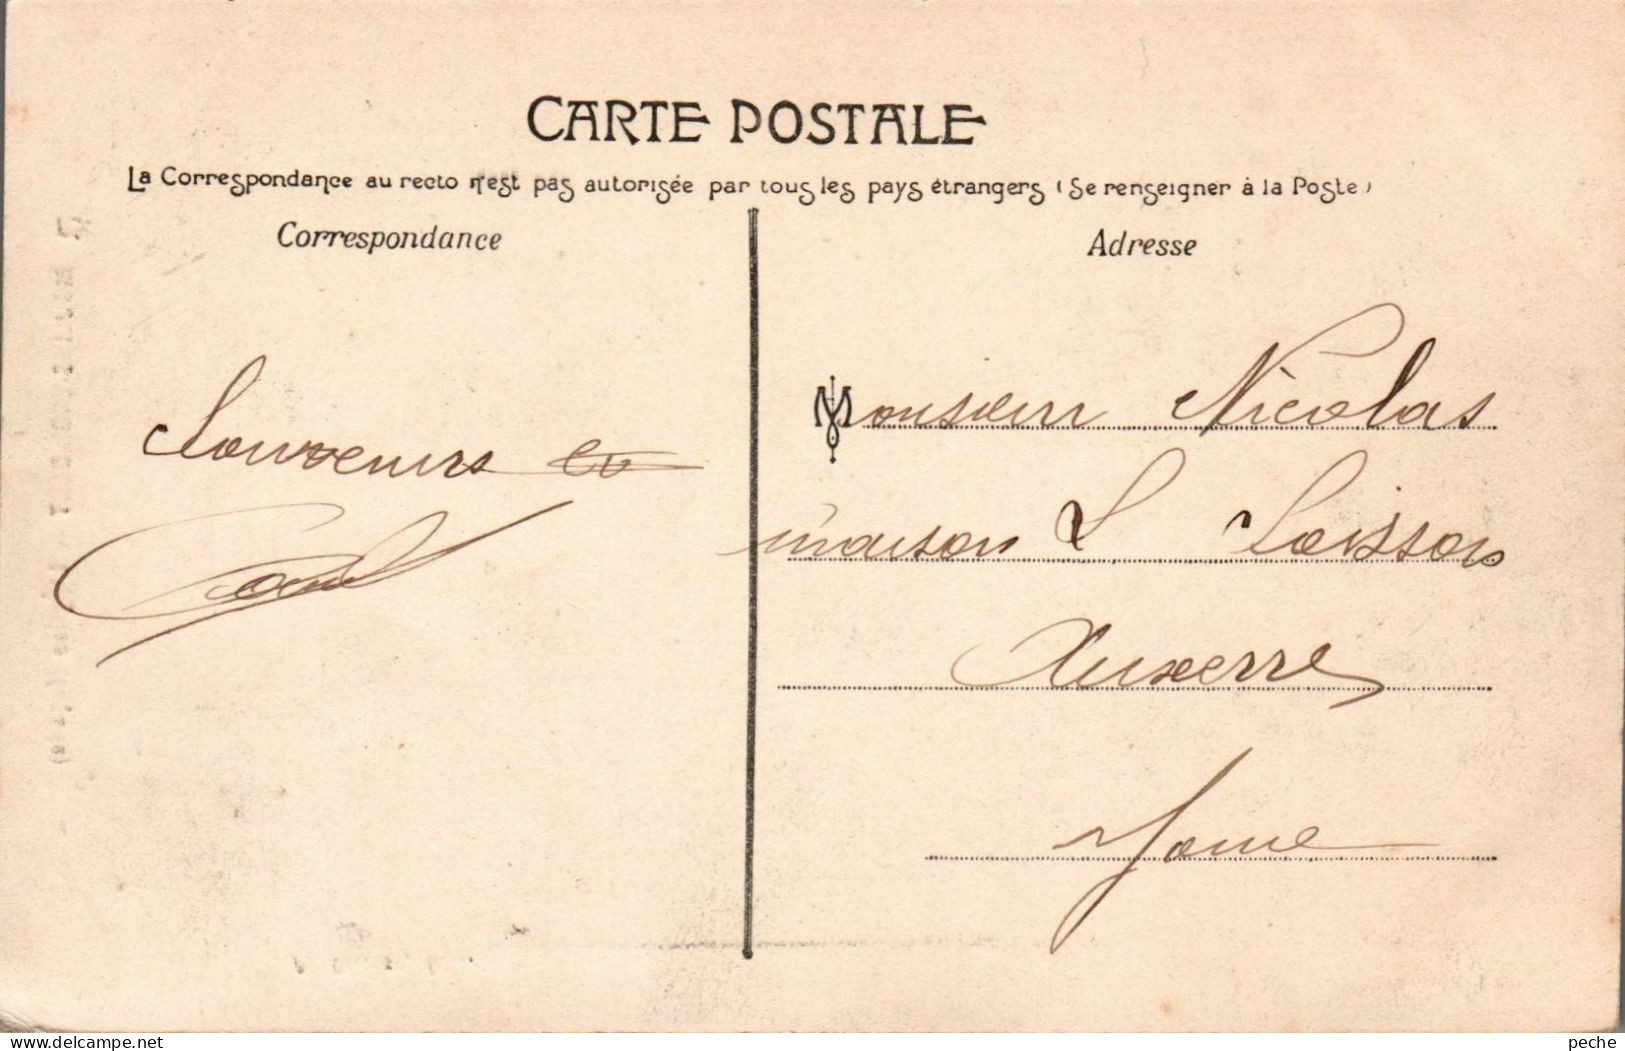 CARTE POSTALE
La Correspondance au recto n'est pas autorisée par tous les pays étrangers (Se renseigner à la Poste)
Correspondance
Adresse
Souvenirs
Monsieur Nicolas
maison L Soisson
Auxerre
Yonne
delcampe.net
peche